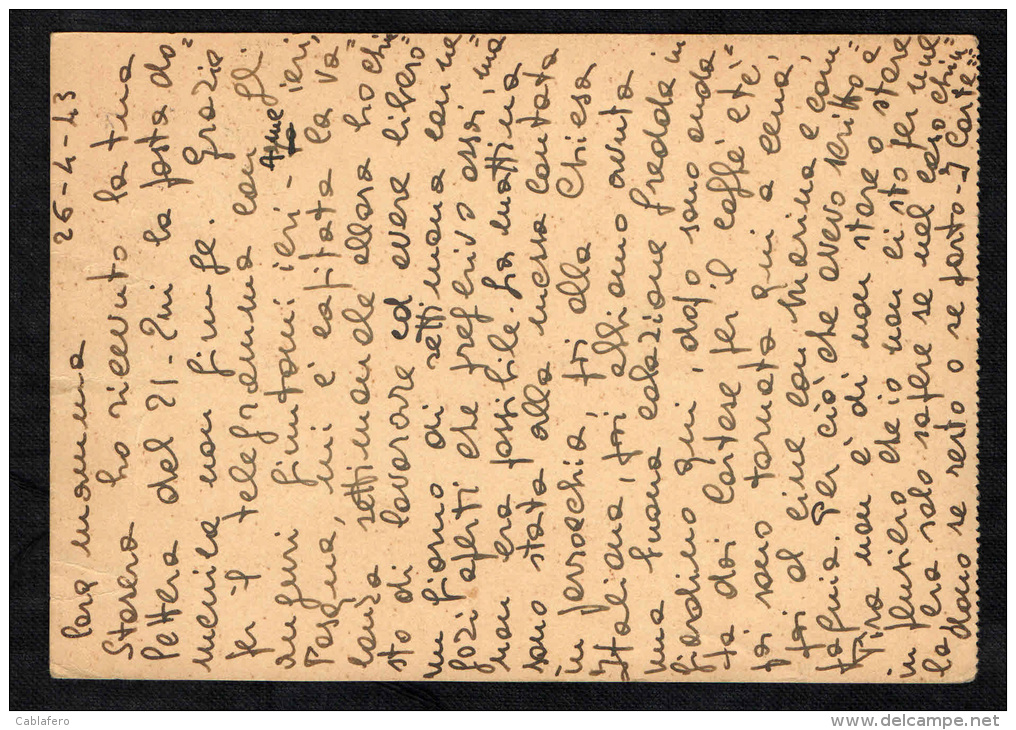 Cara mamma 26-4-43
Stasera ho ricevuto la tua
lettera del 21- Qui la posta do=
menicale non giunge. Grazie
per il telegramma con gli
auguri giuntomi ieri - Anche ieri,
Pasqua, mi è capitata la va=
canza settimanale allora ho chie=
sto di lavorare ed avere libero
un giorno di settimana con ne=
gozi aperti che preferivo assai, ma
non era possibile. Sia mattina
sono stata alla messa cantata
in parrocchia, poi alla Chiesa
Italiana, poi abbiamo avuto
una buona colazione fredda in
giardino qui, dopo sono anda=
ta dai Cortese per il caffè e tè
poi sono tornata qui a cena,
poi al cine con Marina e com=
pagnia. Per ciò che avevo scritto a
Pisa non è di non stare o stare
in pensiero che io non ci sto per me
era solo sapere se nel caso chiu=
dano se resto o se parto - I Corte=
Cablafero
www.delcampe.net